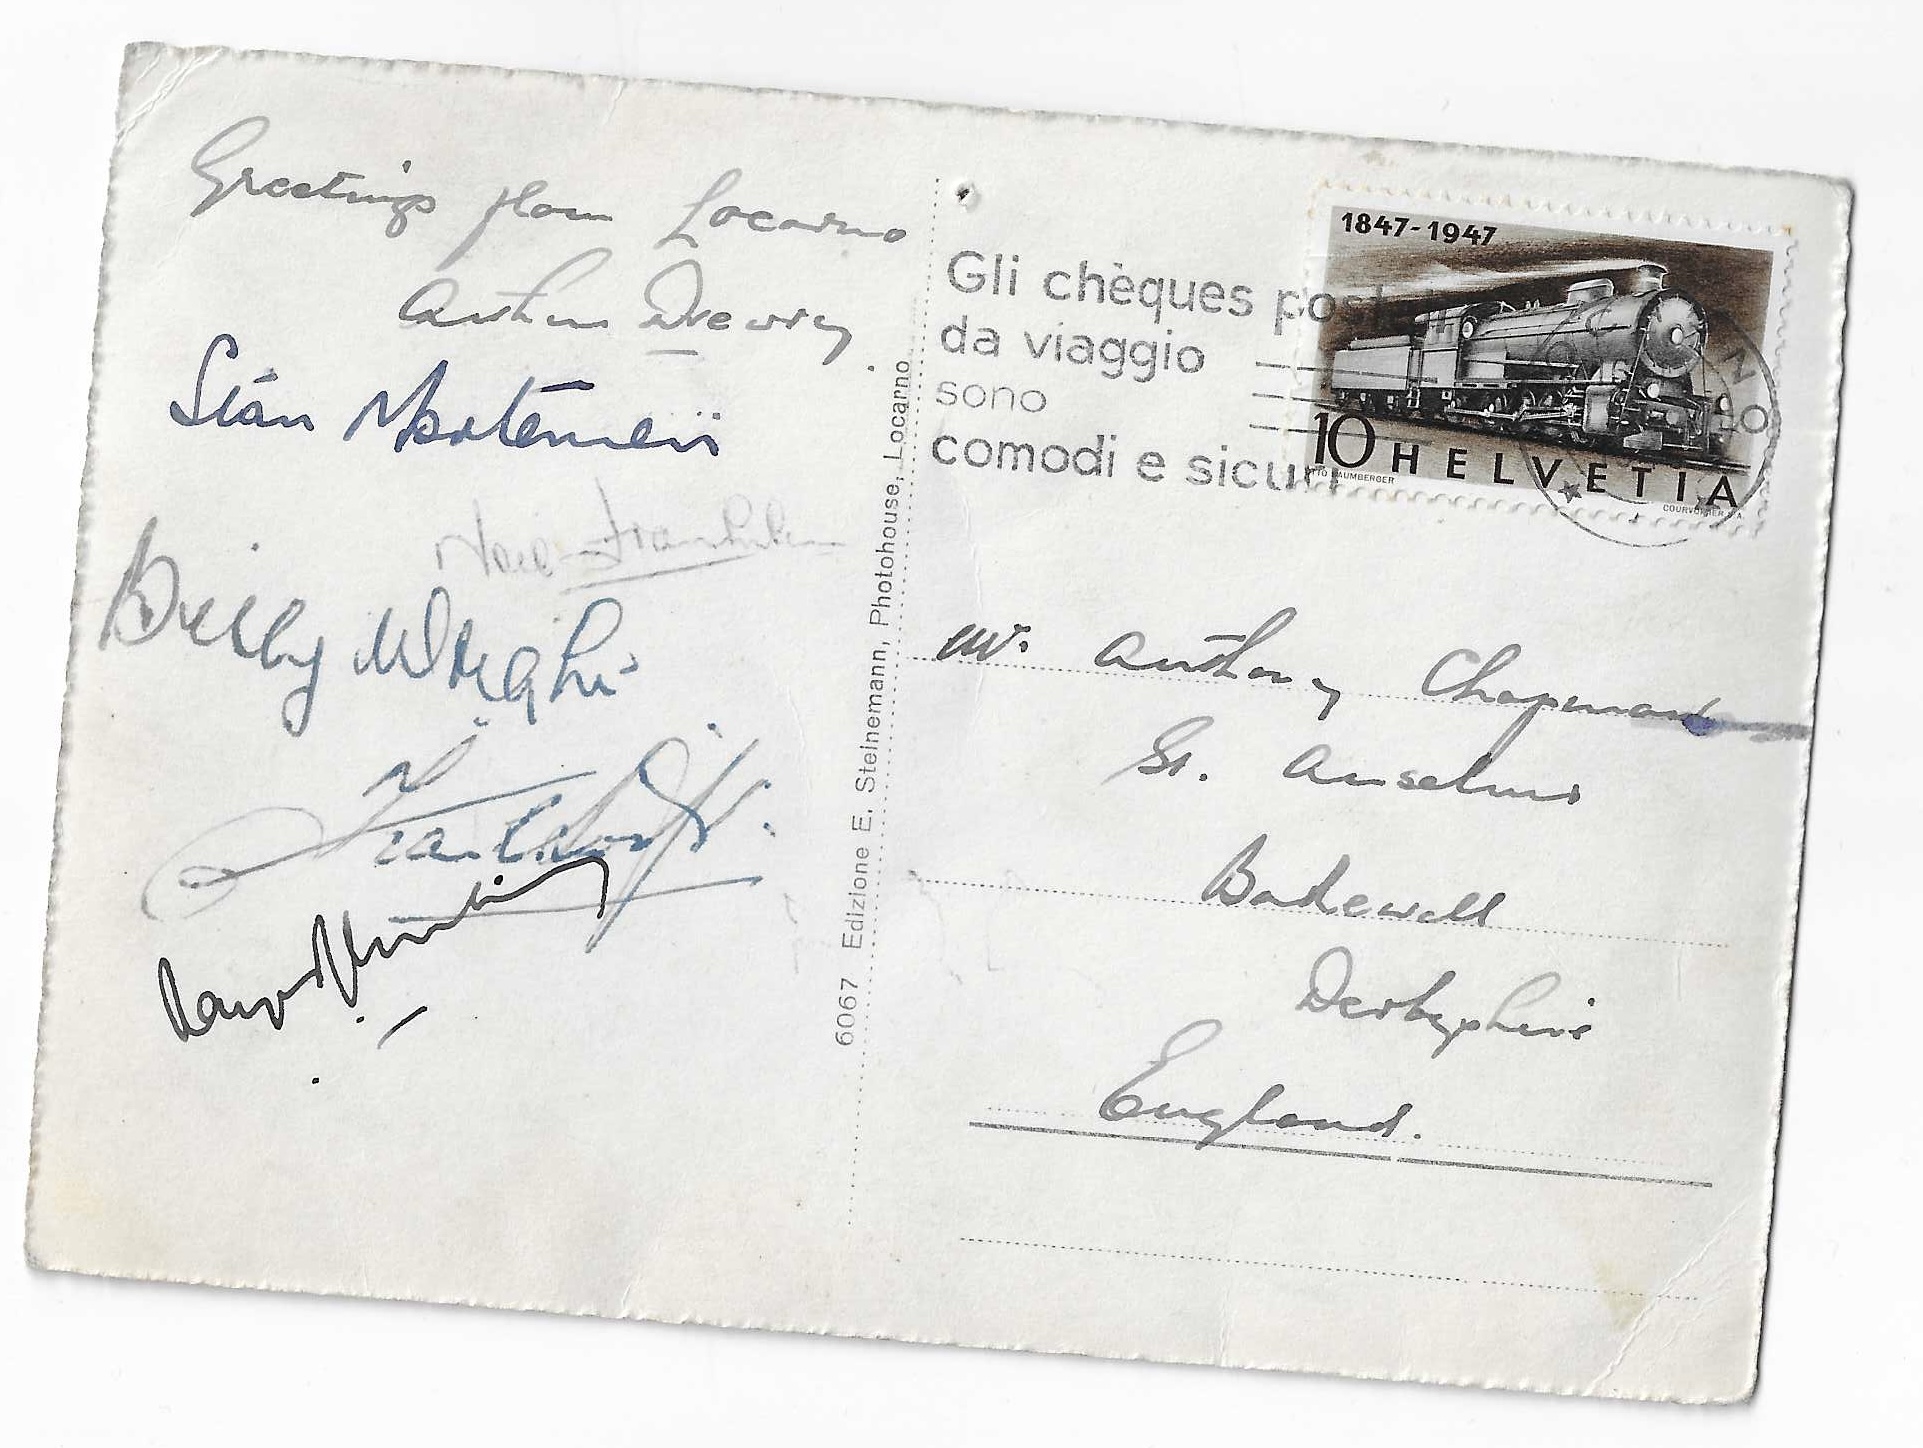 Greetings from Locarno
Arthur Drewry.
Stan Mortensen
Neil Franklin
Billy Wright
Frank Swift.
Gli chèques post
da viaggio
sono
comodi e sicuri
1847-1947
10 HELVETIA
OTTO BAUMBERGER
COURVOISIER S.A.
6067 Edizione E. Steinemann, Photohouse, Locarno
Mr. Anthony Chapman
St. Anselms
Bakewell
Derbyshire
England.